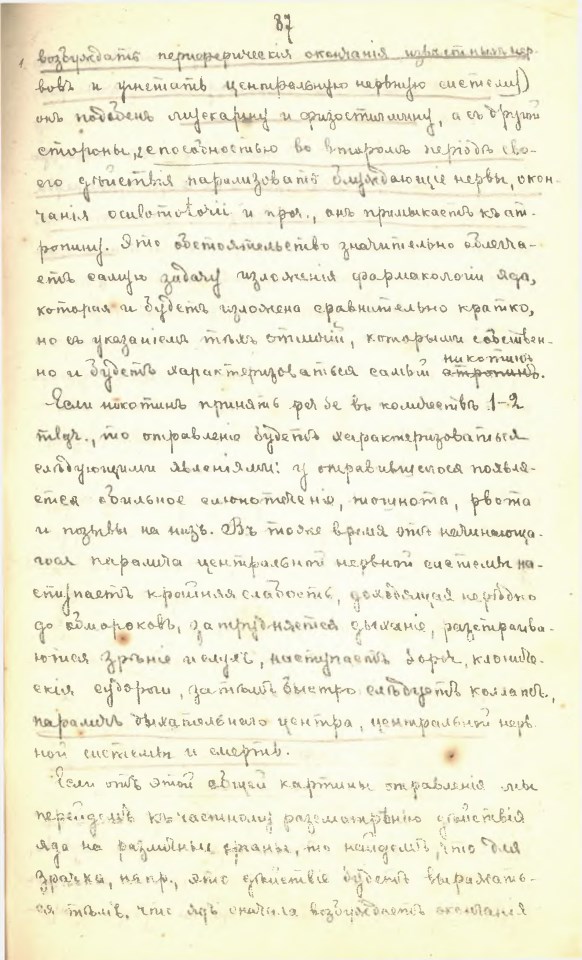 87
возбуждать периферическія окончанія извѣстныхъ нер-
вовъ и угнетать центральную нервную систему)
онъ подобенъ мускарину и физостигмину, а съ другой
стороны, способностью во второмъ періодѣ сво-
его дѣйствія парализовать блуждающіе нервы, окон-
чанія и проч., онъ примыкаетъ къ ат-
ропину. Это обстоятельство значительно облегча-
етъ самую задачу изложенія фармакологіи яда,
которая и будетъ изложена сравнительно кратко,
но съ указаніемъ тѣхъ отличій, которыми собствен-
никотинъ
но и будетъ характеризоваться самый атропинъ.
Если никотинъ принять per se въ количествѣ 1-2
то отравленіе будетъ характеризоваться
слѣдующими явленіями: у отравившагося появля-
ется обильное слюнотеченіе, тошнота, рвота
и позывы на низъ. Въ тоже время отъ начинающа-
гося паралича центральной нервной системы на-
ступаетъ крайняя слабость, доходящая нерѣдко
до обмороковъ, затрудняется дыханіе, разстраива-
ются зрѣніе и слухъ, наступаетъ клониче-
скія судороги, затѣмъ быстро слѣдуетъ коллапсъ,
параличъ дыхательнаго центра, центральной нерв-
ной системы и смерть.
Если отъ этой общей картины отравленія мы
перейдемъ къ частному разсмотрѣнію дѣйствія
яда на различные органы, то найдемъ, что для
зрачка, напр., это дѣйствіе будетъ выражать-
ся тѣмъ, что ядъ сначала возбуждаетъ окончанія